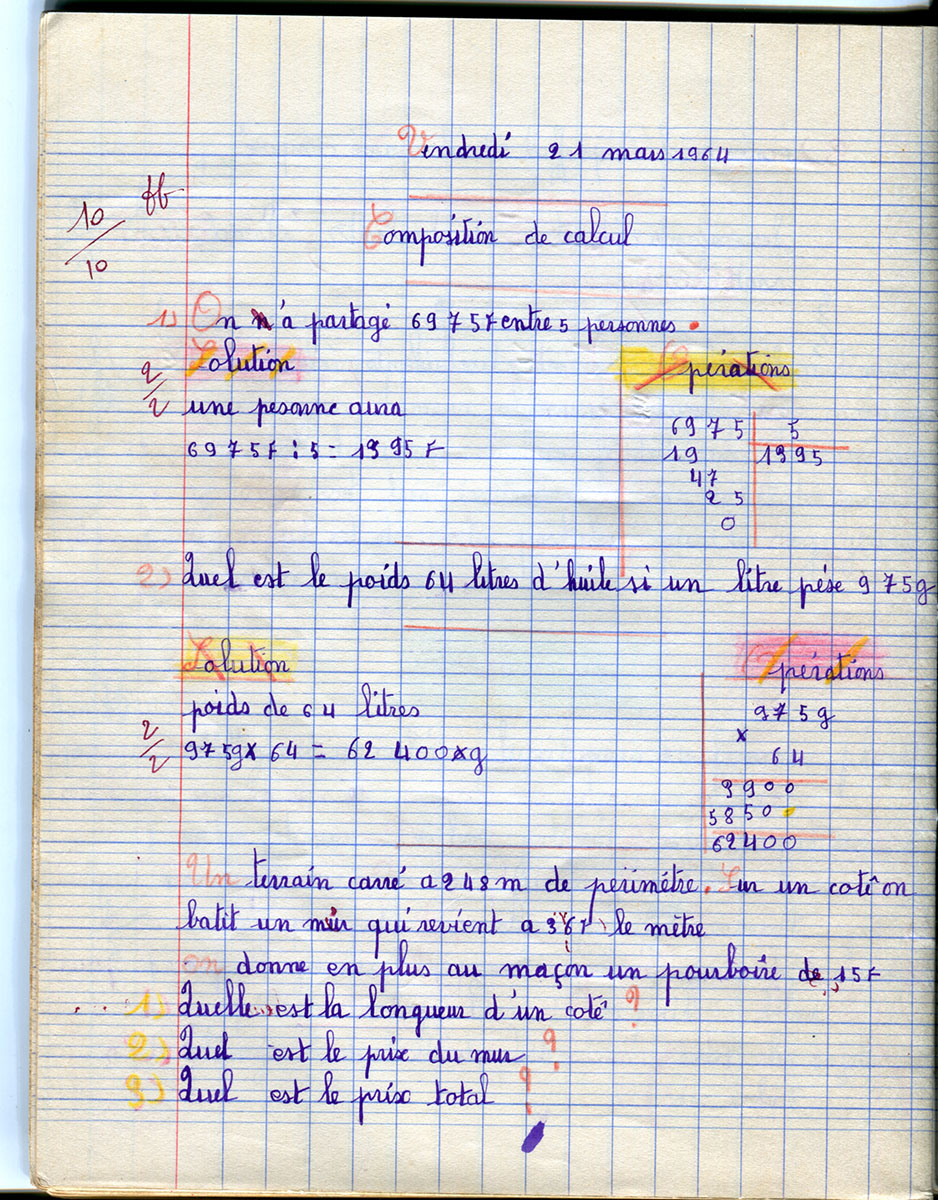 Vendredi 21 mars 1964
10/10 tb
Composition de calcul
1) On a partagé 6975F entre 5 personnes.
Solution
2/2
une pesonne aura
6975F : 5 = 1395F
Opérations
6975 5
19 1395
47
25
0
2) Quel est le poids 64 litres d'huile si un litre pése 975g
Solution
poids de 64 litres
2/2
975g x 64 = 62 400 g
Opérations
975g
x
64
3900
5850.
62400
Un terrain carré a 248m de périmétre. Sur un coté on
batit un mur qui revient a 36F le mètre
on donne en plus au maçon un pourboire de 15F
1) Quelle est la longueur d'un coté ?
2) Quel est le prix du mur ?
3) Quel est le prix total ?